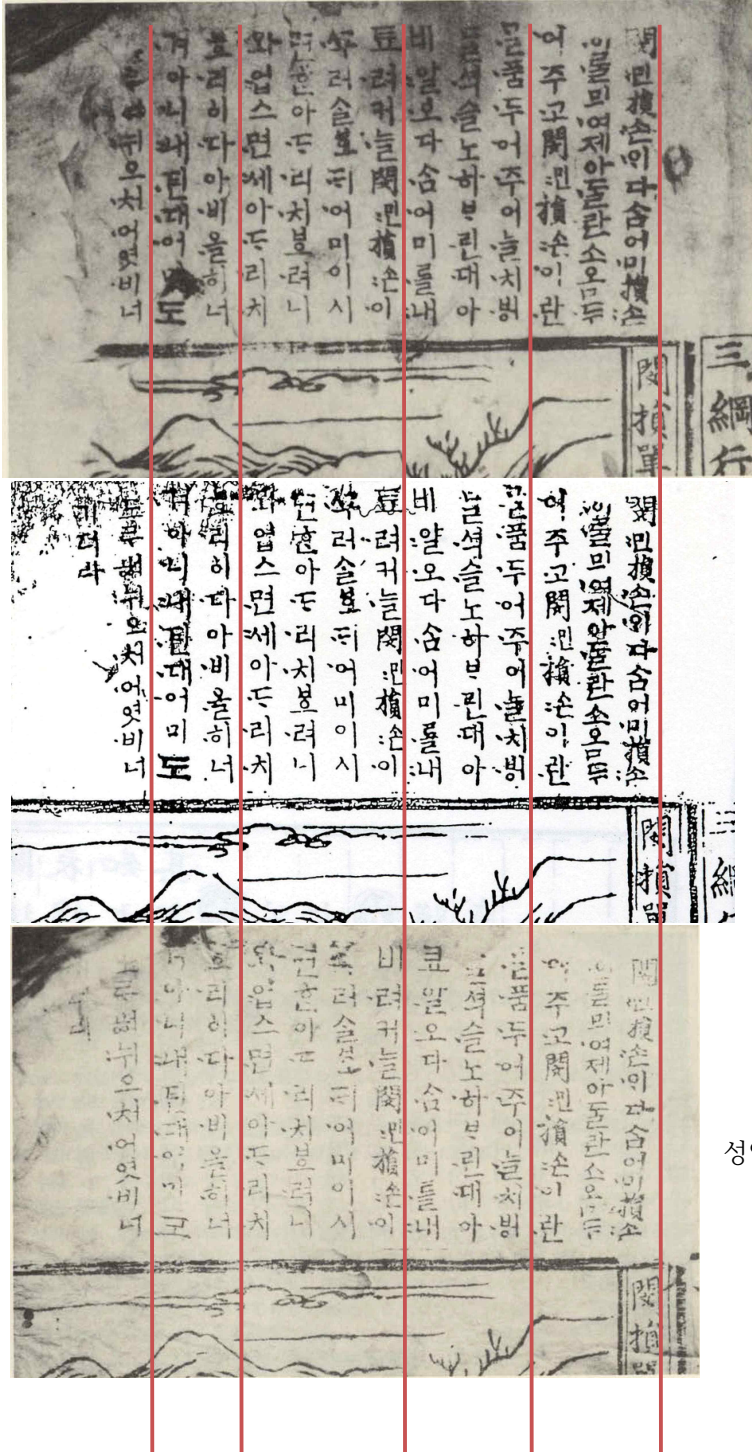 閔민損손이다슴어미損손
이를믜여제아ᄃᆞᆯ란소오ᇝ두
어주고閔민損손이란
ᄀᆞᆯ품두어주어늘치ᄫᅥ
ᄆᆞᆯ셕슬노하ᄇᆞ린대아
비알오다슴어미를내
툐려커늘閔민損손이
ᄭᅮ러ᄉᆞᆯᄫᅩᄃᆡ어미이시
면ᄒᆞᆫ아ᄃᆞ리치ᄫᅳ려니
와업스면세아ᄃᆞ리치
ᄫᅳ리이다아비올히너
겨아니내틴대어미도
뉘으처어엿비너
三綱行
閔損單
閔민損손이다슴어미損손
이를믜여제아ᄃᆞᆯ란소오ᇝ두
어주고閔민損손이란
ᄀᆞᆯ품두어주어늘치ᄫᅥ
ᄆᆞᆯ셕슬노하ᄇᆞ린대아
비알오다슴어미를내
툐려커늘閔민損손이
ᄭᅮ러ᄉᆞᆯᄫᅩᄃᆡ어미이시
면ᄒᆞᆫ아ᄃᆞ리치ᄫᅳ려니
와업스면세아ᄃᆞ리치
ᄫᅳ리이다아비올히너
겨아니내틴대어미도
뉘으처어엿비너
기더라
三綱行
閔損單
閔민損손이다슴어미損손
이를믜여제아ᄃᆞᆯ란소오ᇝ두
어주고閔민損손이란
ᄀᆞᆯ품두어주어늘치ᄫᅥ
ᄆᆞᆯ셕슬노하ᄇᆞ린대아
료알오다슴어미를내
비려커늘閔민損손이
ᄭᅮ러ᄉᆞᆯᄫᅩᄃᆡ어미이시
면ᄒᆞᆫ아ᄃᆞ리치ᄫᅳ려니
와업스면세아ᄃᆞ리치
ᄫᅳ리이다아비올히너
겨아니내틴대어미코
뉘으처어엿비너
閔損單